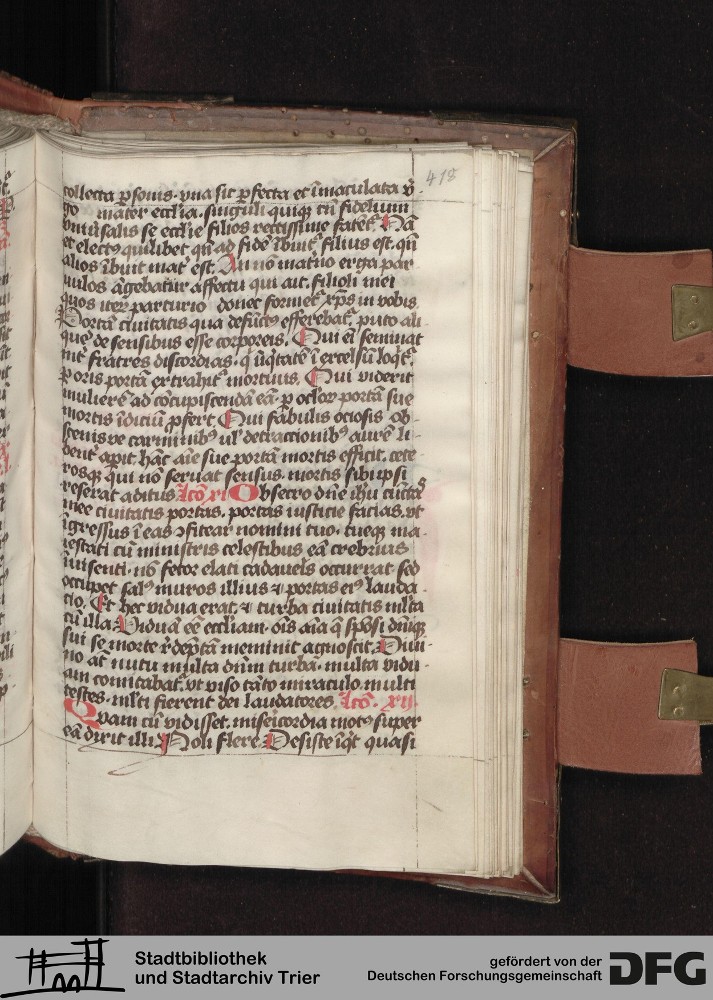 418
collecta ꝑsonis. vna sit ꝑfecta et īmaculata v̄
go mater eccl̄ia. singuli quiqꝫ cū fidelium
vniūsalis se eccl̄ie filios rectissime fatent᷑. Nā
et electꝰ quilibet qn̄ ad fidē ībuit᷑ filius est. qn̄
alios ībuit mat᷑ est. An nō matno erga par
uulos āgebatur affectu qui ait. filioli mei
quos iteꝝ parturio donec formet᷑ xp̄s in vobis
Portā ciuitatis qua defūctꝰ efferebat᷑. puto ali
quē de sensibus esse corporeis. Qui em̄ seminat
int᷑ fratres discordias. q̇ īiq̇tatē ī excelsū loqt᷑.
ꝑ oris portā extrahit᷑ mortuus. Qui viderit
mulierē ad cōcupiscendā eā. ꝑ ocl'oꝝ portā sue
mortis īdiciū ꝓfert. Qui fabulis ociosis ob
scenisve carminibꝰ ul' detractionibꝰ aurē li
bent᷑ apit. hāc aīe sue portā mortis efficit. cete
rosqꝫ qui nō seruat sensus. mortis sibi ipsi
reserat aditus. Lc̄o. xi Obsecro dn̄e ih̄u cūctas
mee ciuitatis portas. portas iusticie facias. vt
īgressus ī eas ꝯfitear nomini tuo. tueqꝫ ma
iestati cū ministris celestibus eā crebrius
īuisenti. nō fetor elati cadaueris occurrat sed
occupet salꝰ muros illius ⁊ portas eiꝰ lauda
tio. Et hec vidua erat. ⁊ turba ciuitatis ml'ta
cū illa. Viduā eē eccliam. oīs aīa q̄ spōsi dn̄iqꝫ
sui se morte rēdēptā meminit agnoscit. Diui
no at᷑ nutu multa dn̄m turba. multa vidu
am comitabat᷑. vt viso tāto miraculo. multi
testes. ml'ti fierent dei laudatores. Lc̄o. xij.
Quam cū vidisset. misericordia motꝰ super
eā dixit illi. Noli flere. Desiste īq̇t quasi
Stadtbibliothek
und Stadtarchiv Trier
gefördert von der
Deutschen Forschungsgemeinschaft DFG